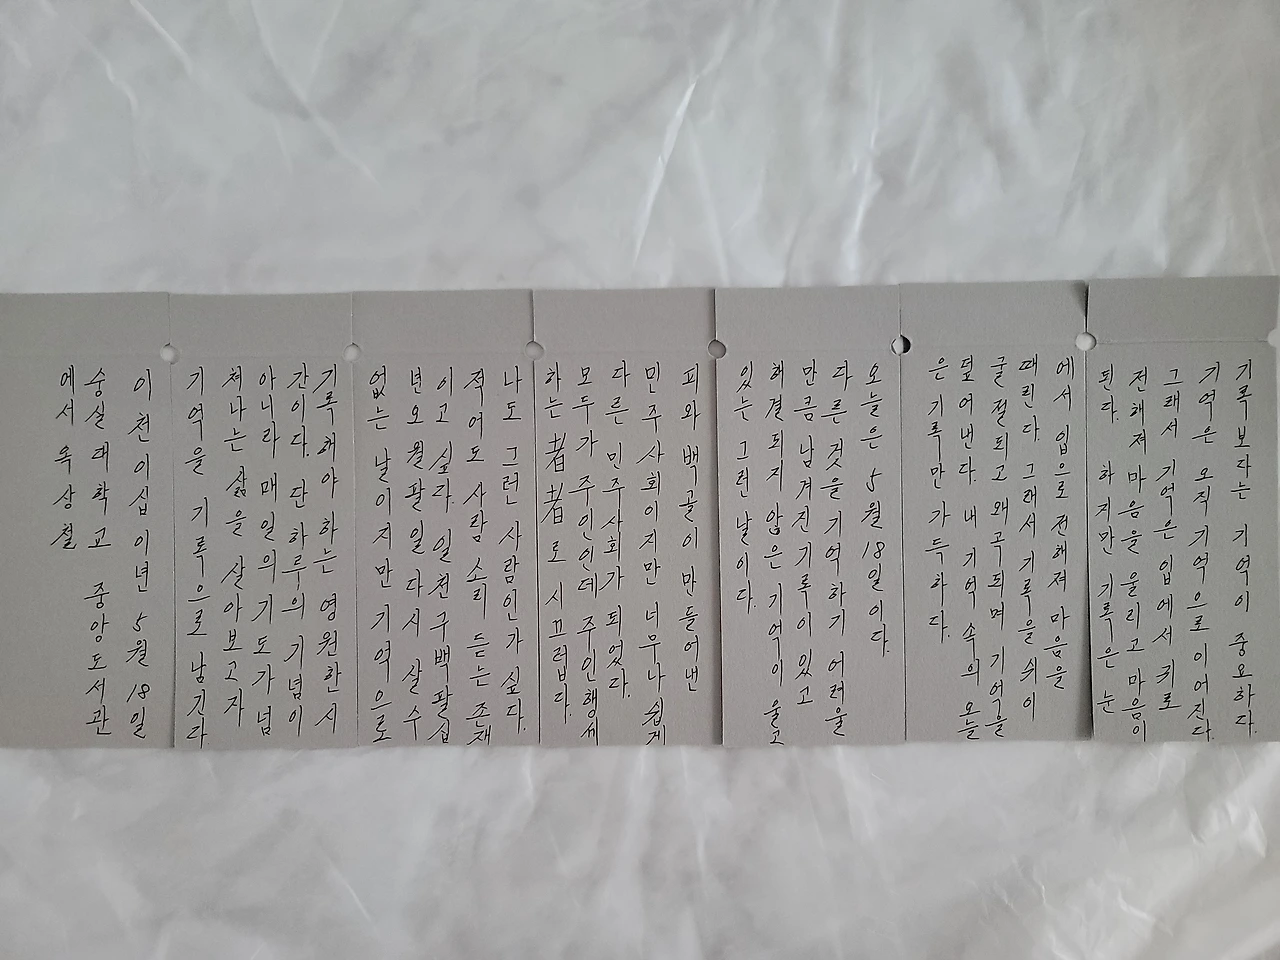 기록보다는 기억이 중요하다.
기억은 오직 기억으로 이어진다.
그래서 기억은 입에서 귀로
전해져 마음을 울리고 마음이
된다. 하지만 기록은 눈
에서 입으로 전해져 마음을
때린다. 그래서 기록은 쉬이
굴절되고 왜곡되며 기억을
덮어낸다. 내 기억 속의 오늘
은 기록만 가득하다.
오늘은 5월 18일이다.
다른것을 기억하기 어려울
만큼 남겨진 기록이 있고
해결되지 않은 기억이 울고
있는 그런 날이다.
피와 백골이 만들어낸
민주사회이지만 너무나 쉽게
다른 민주사회가 되었다.
모두가 주인인데 주인행세
하는 者者로 시끄럽다.
나도 그런 사람인가 싶다.
적어도 사람 소리 듣는 존재
이고 싶다. 일천구백팔십
년 오월팔일 다시 살 수
없는 날이지만 기억으로
기록해야 하는 영원한 시
간이다. 단 하루의 기념이
아니라 매일의 기도가 넘
쳐나는 삶을 살아보고자
기억을 기록으로 남긴다
이천이십이년 5월 18일
숭실대학교 중앙도서관
에서 옥상철